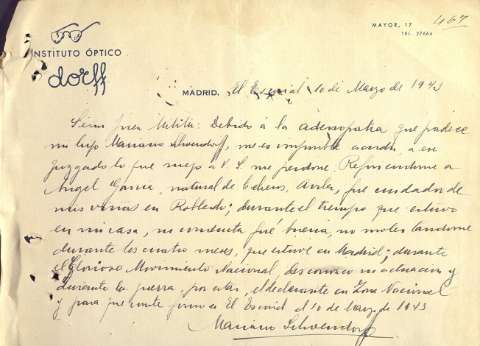 467
MAYOR, 17
TEL. 27664
INSTITUTO ÓPTICO
dorff
MADRID. El Escorial 10 de Marzo de 1943
Militar: Debido á la adenopatia que padece
mi hijo Mariano, me es imposible acudir á ese
juzgado lo que ruego á V S me perdone. Refiriendome a
Angel Garcia, natural de Avila, que cuidador de
mis vacas en Robledo; durante el tiempo que estuvo
en mi casa, su conducta fue buena, no molestandome
durante los cuatro meses, que estuve en Madrid; durante
el Glorioso Movimiento Nacional, desconozco su actuacion y
durante la guerra, por estar, el declarante en Zona Nacional
y para que conste firmo en El Escorial el 10 de Marzo de 1943
Mariano